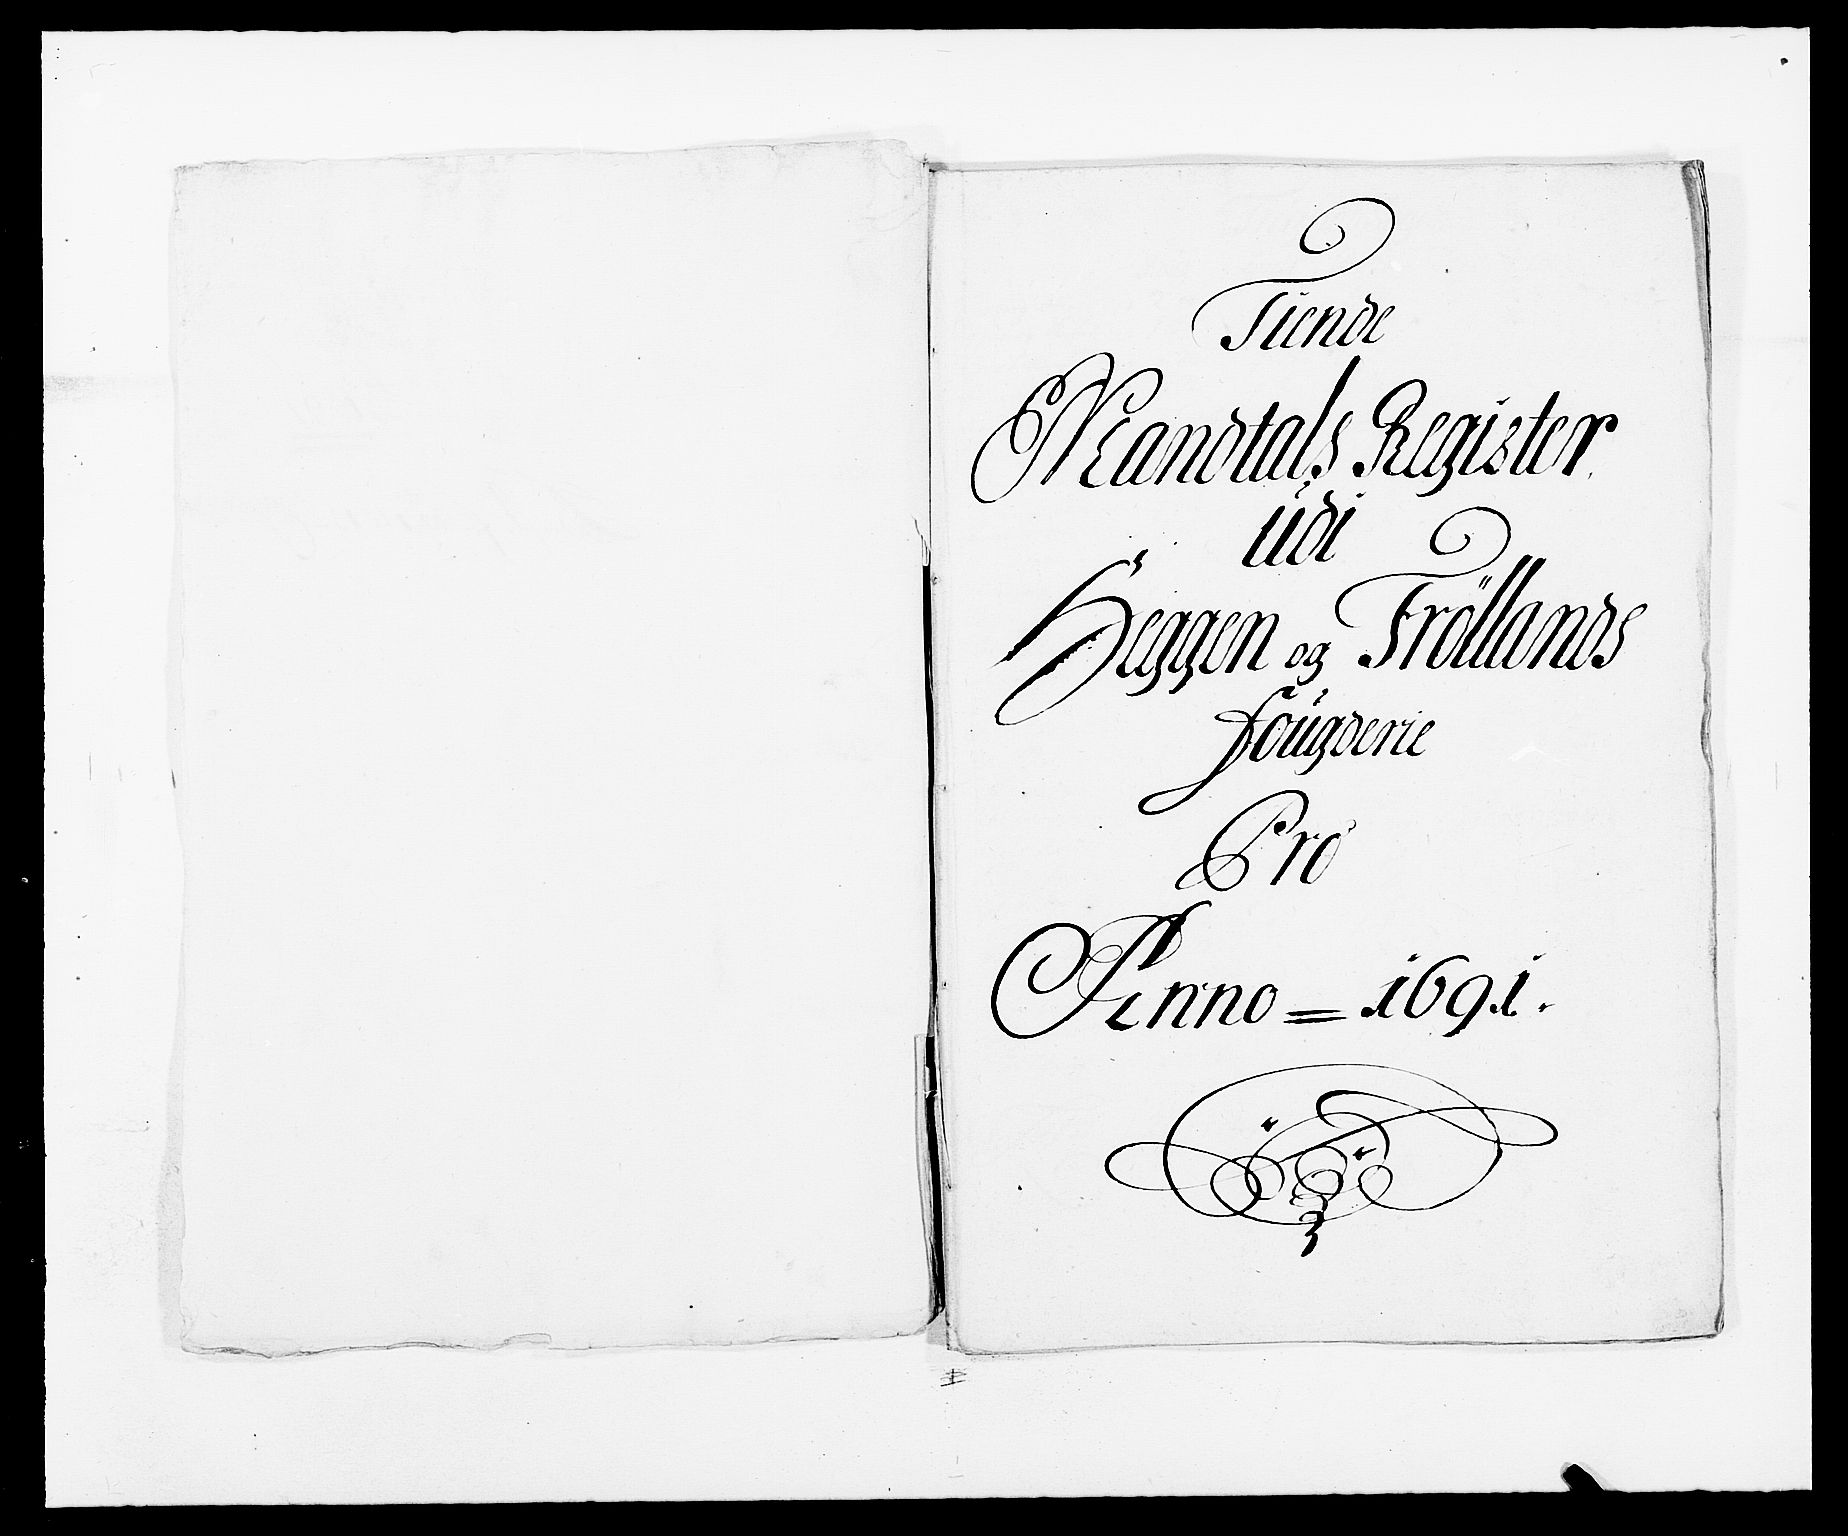 Tiende
Mandtals Register
udi
Heggen og Fröllands
fougderie
Pro
Anno = 1691.